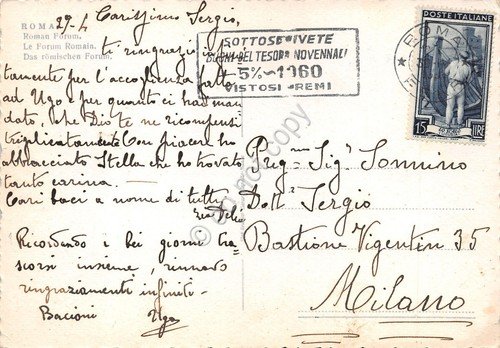 ROMA
Roman Forum.
Le Forum Romain.
Das römischen Forum.
29-4
Carissimo Sergio,
ti ringrazio in-
tamente per l'accoglienza fatta
ad Ugo e per quanto ci hai man
dato, che Dio te ne ricompensi
triplicatamente. Con piacere ho
abbracciato Stella che ho trovato
tanto carina.
Cari baci a nome di tutti
zia Delia
Ricordando i bei giorni tra-
scorsi insieme, rinnovo
ringraziamenti infiniti.
Bacioni Ugo
SOTTOSCRIVETE
BUONI DEL TESORO NOVENNALI
5%-1960
VISTOSI PREMI
ROMA
POSTE ITALIANE
15 LIRE
Preg.mo Sig. Sonnino
Dott. Sergio
Bastione Vigentin 35
Milano